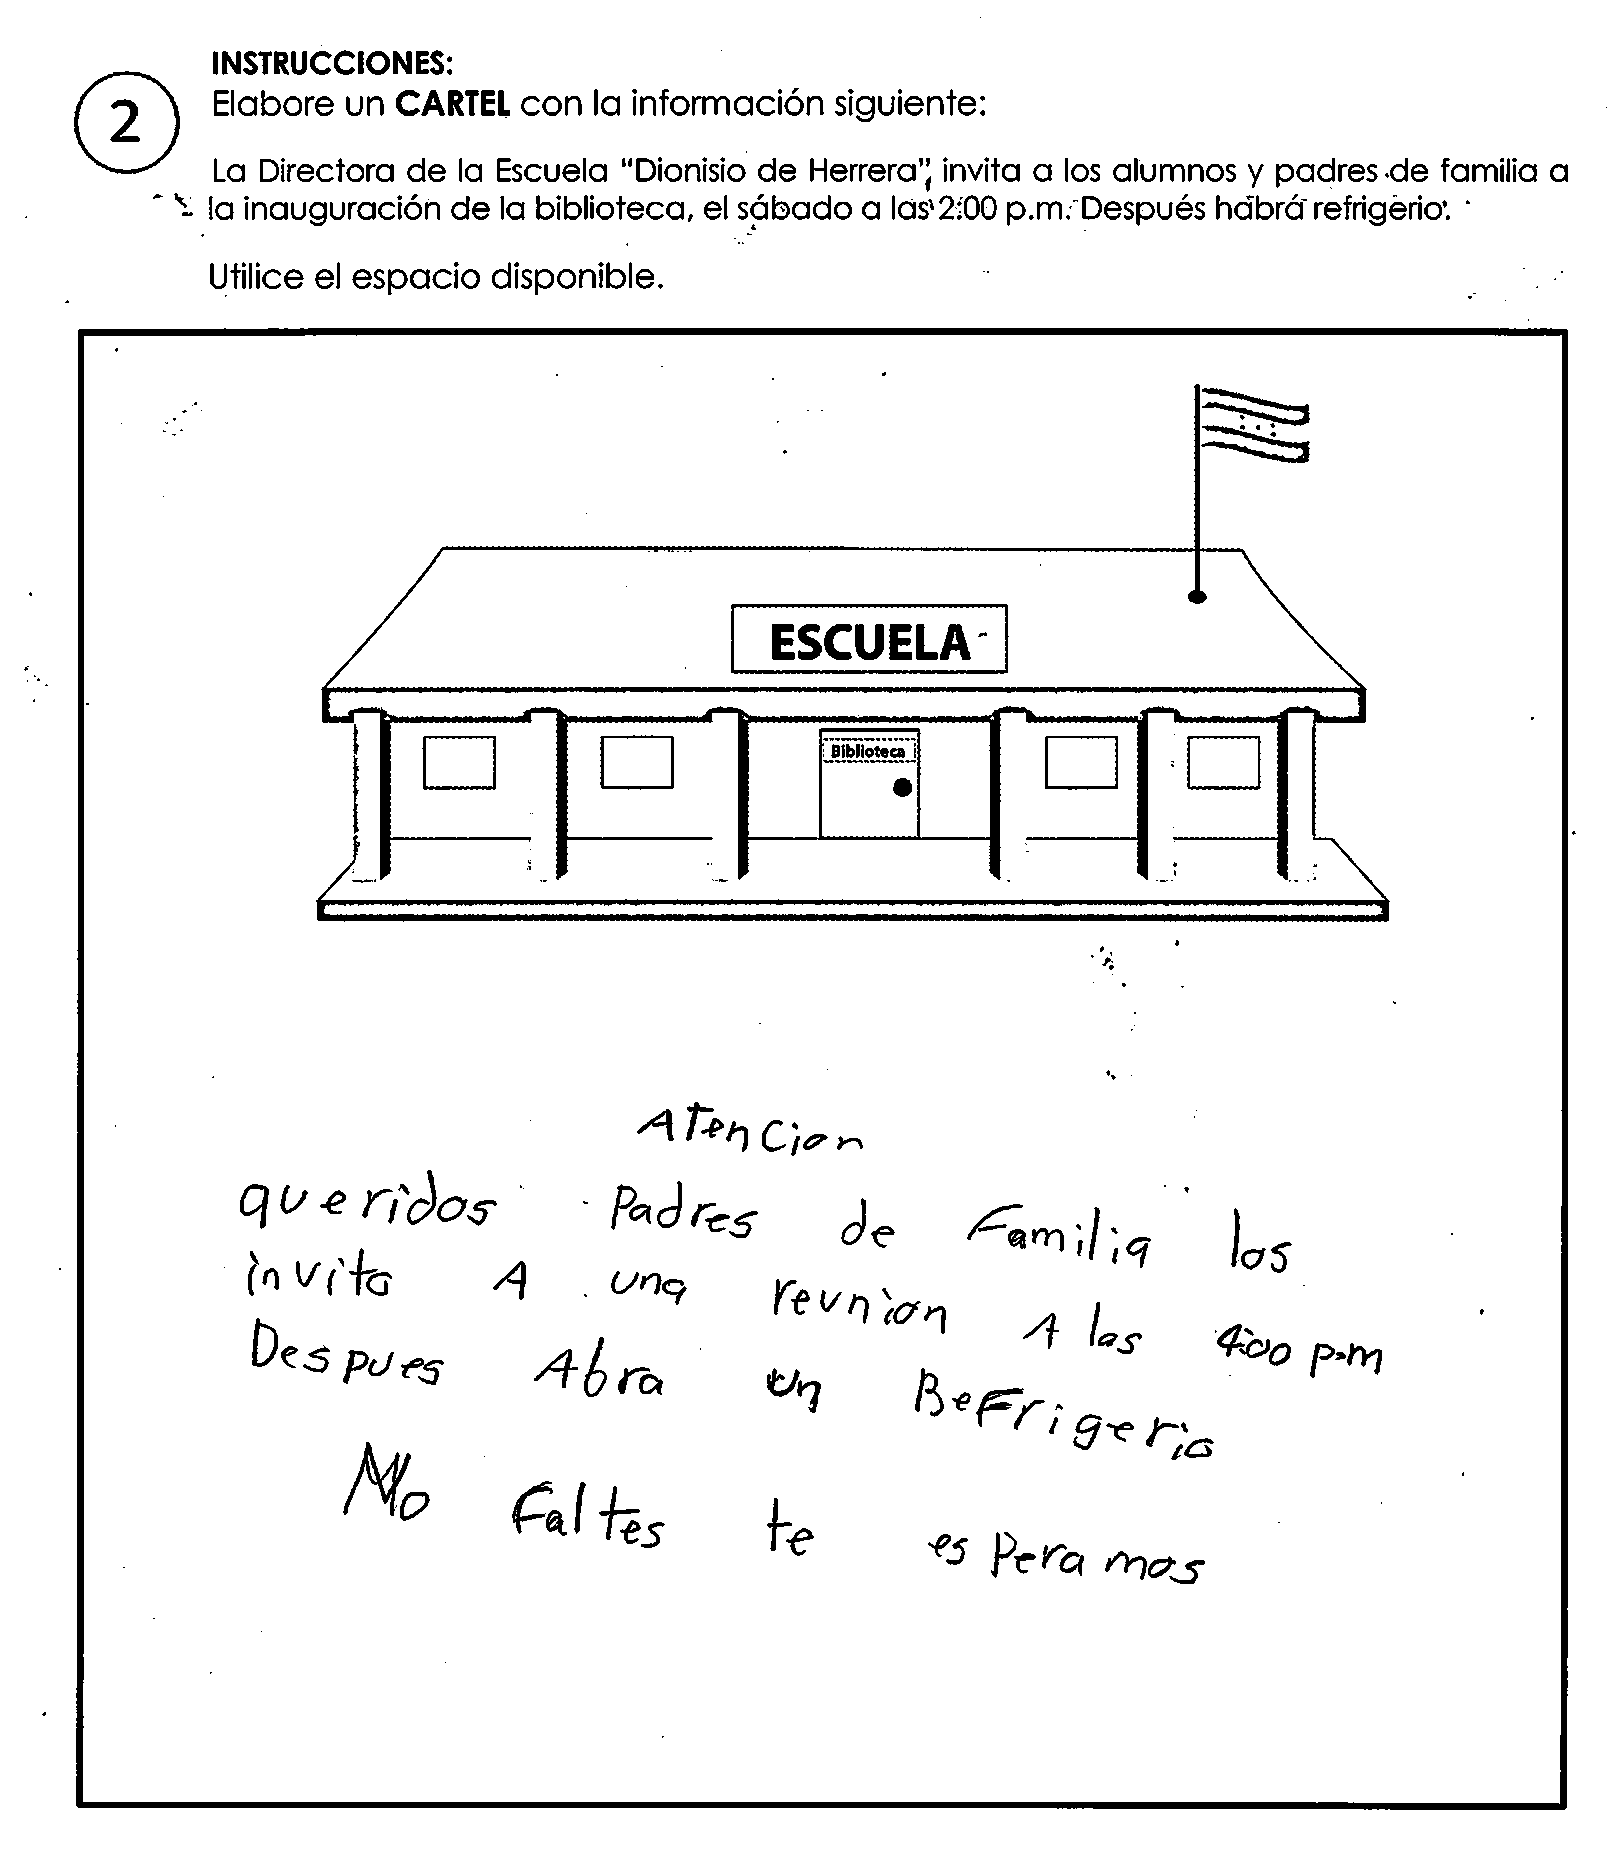 INSTRUCCIONES:
2
Elabore un CARTEL con la información siguiente:
La Directora de la Escuela "Dionisio de Herrera", invita a los alumnos y padres de familia a
la inauguración de la biblioteca, el sábado a las 2:00 p.m. Después habrá refrigerio.
Utilice el espacio disponible.
ESCUELA
Biblioteca
ATencion
queridos Padres de Familia los
invito A una reunion A las 4:00 p.m
Despues Abra un BeFrigerio
No Faltes te esperamos